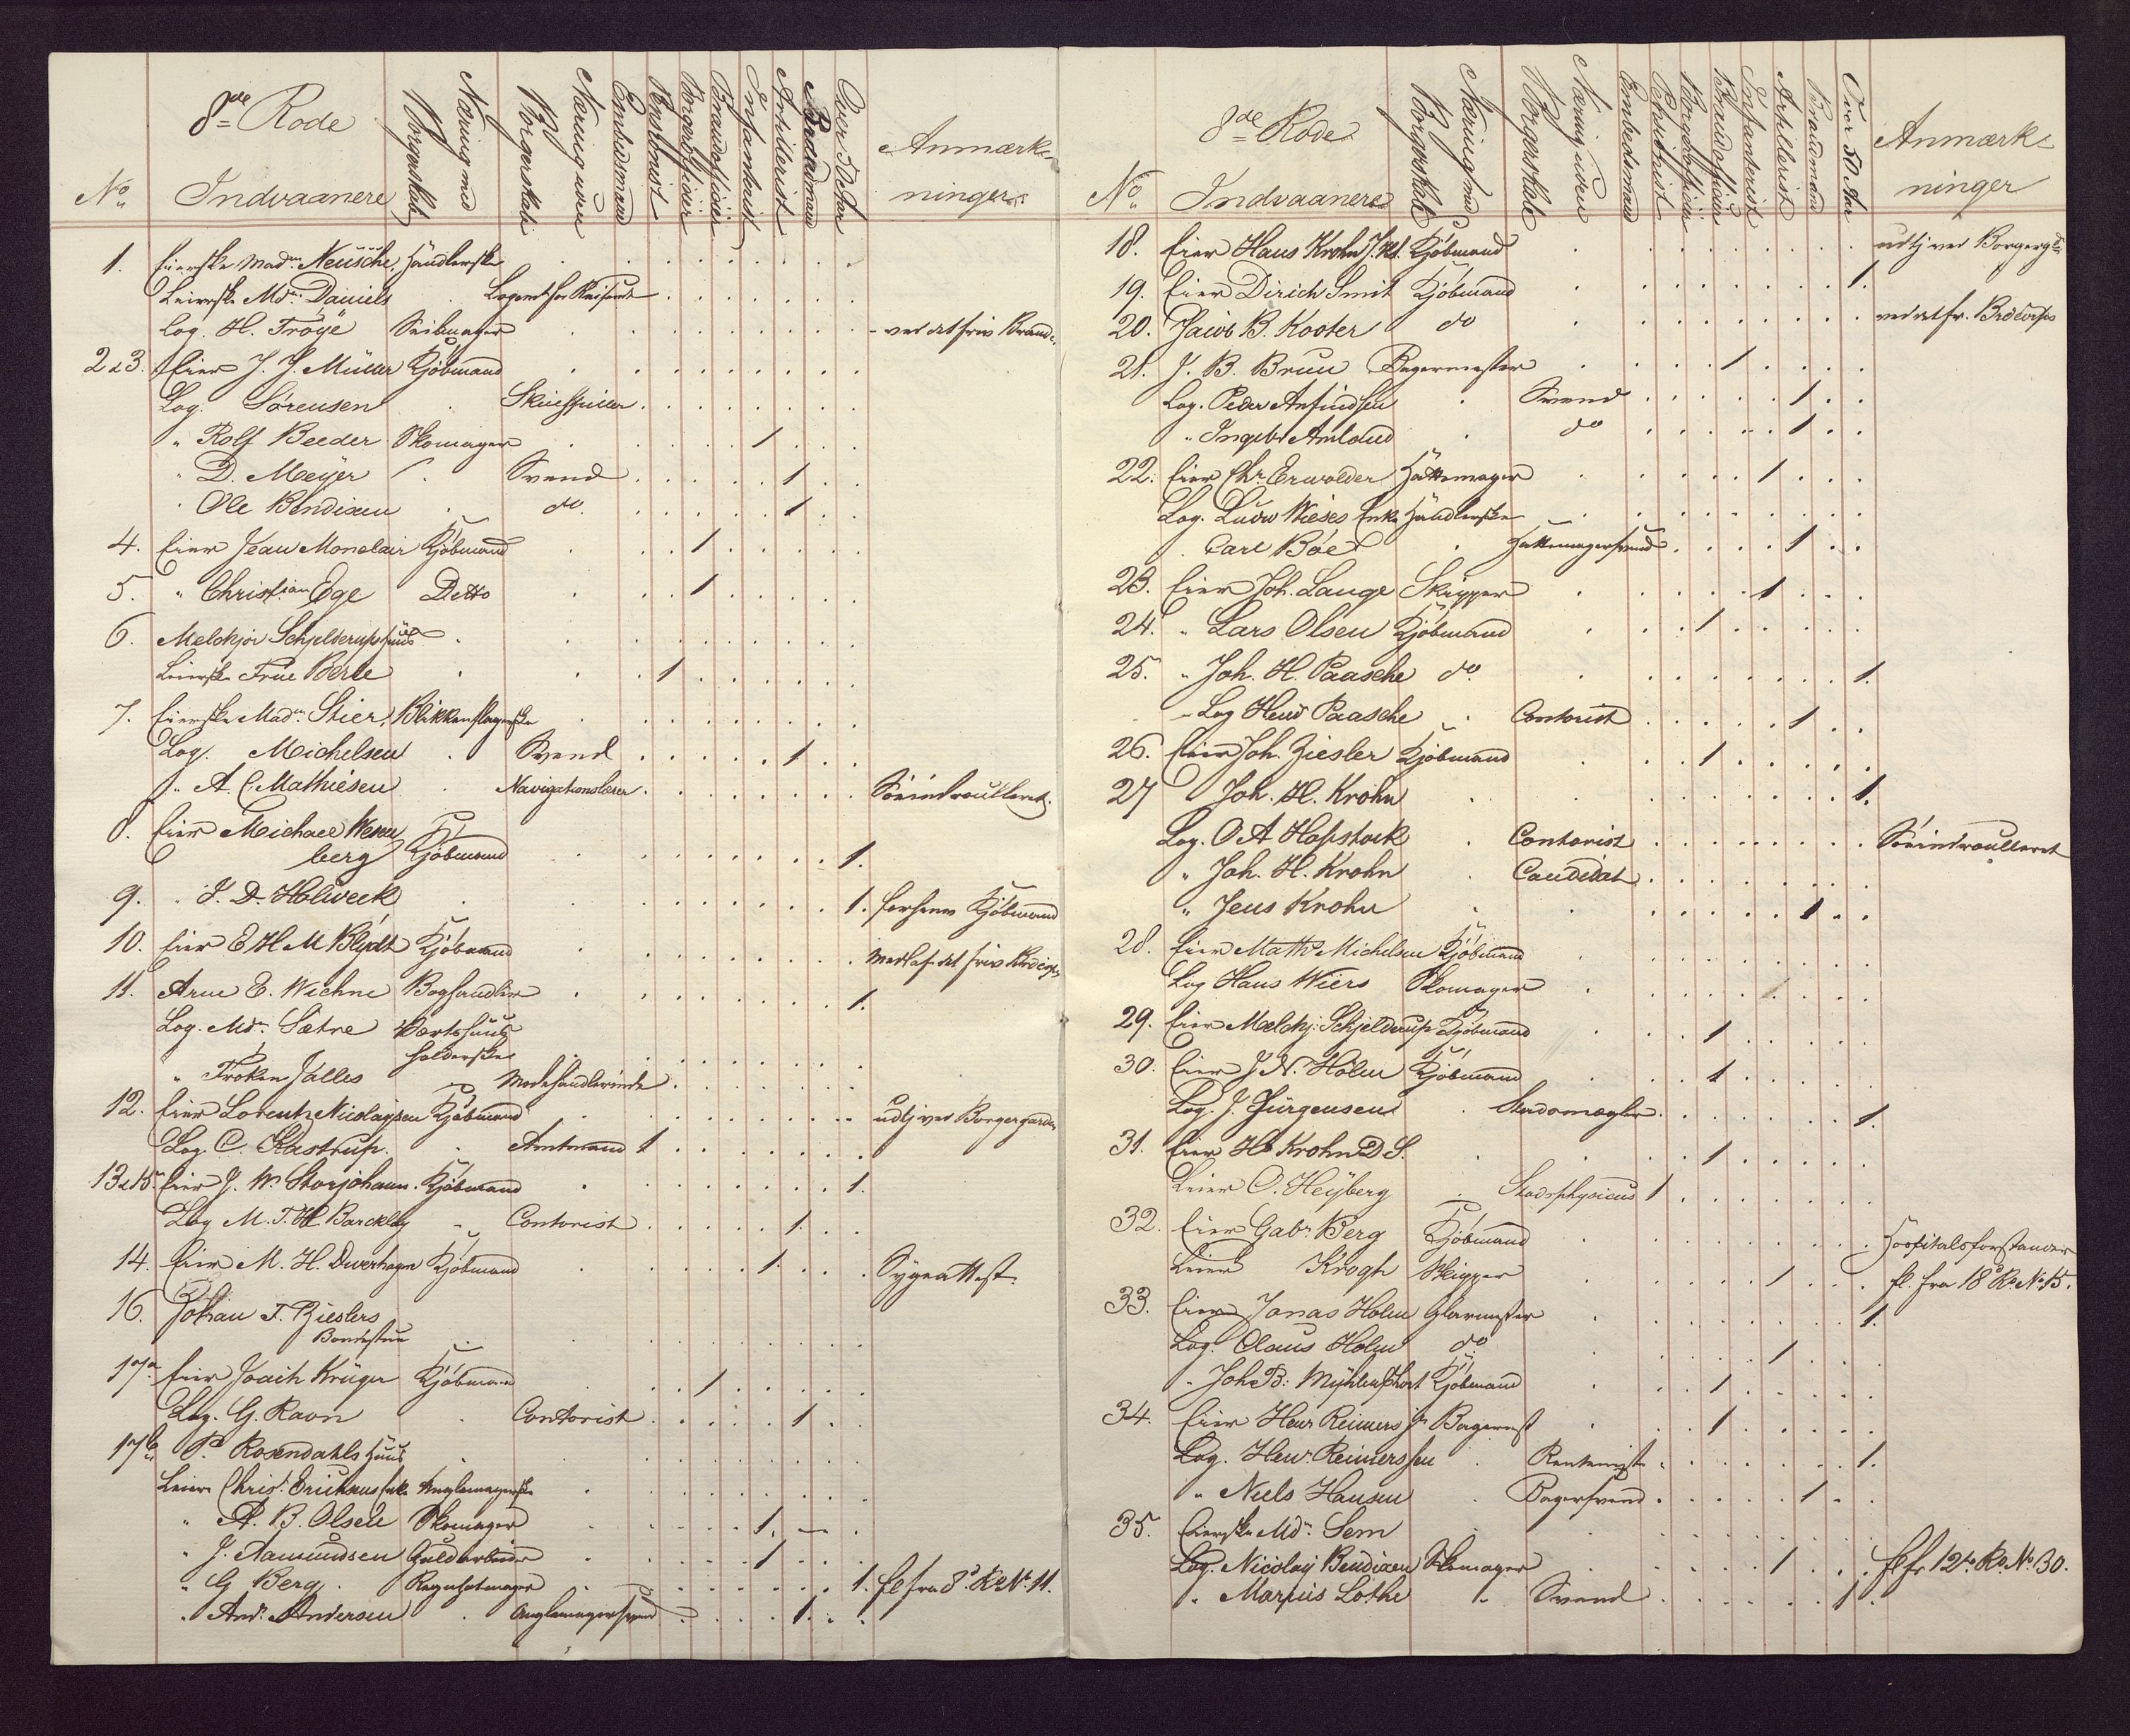 8de Rode
No Indvaanere
Næring med Borgerskab
Næring uden Borgerskab
Embedsmand
Pensionist
Borgerofficier
Brandofficier
Infanterist
Artillerist
Brandmand
Over 50 Aar
Anmærk-
ninger
1. Eierske Madm. Neüsche, Händlerske
Leierske Mdm. Daniels . Logemt for Reisende
Log. H. Tröÿe Seilmager - ved det friv Brand-
2 & 3. Eier J. J. Müller Kjöbmand
Log. Sörensen . Skuespiller
" Rolf Beeder Skomager 1
" D. Meÿer . Svend 1
" Ole Bendixen . do. 1
4. Eier Jean Monclair Kjöbmand 1
5. " Christian Ege Detto 1
6. Melchjor Schjelderups Huus
Leierske Frue Berle 1
7. Eierske Madm. Stier, Blikkenslagerske
Log. Michelsen . Svend 1
" A. C. Mathiesen . Navigationslærer Söeindroulleret.
8. Eier Michael Wesen
berg Kjöbmand 1.
9. " J. D. Holweck 1. forhenv Kjöbmand
10. Eier E H M Blÿdt Kjöbmand
11. Arne E. Wichne Boghandler 1.
Log. Mdm. Sætre Værtshuus
holderske
" Fröken Jalles Modehandlerinde
12. Eier Lorentz Nicolaÿsen Kjöbmand udtj ved Borgergarden
Log. C. Kastrup. . Amtmand 1
13 & 15. Eier J. W. Storjohann. Kjöbmand 1.
Log M. T. H. Barcklay " Contorist 1.
14. Eier M. H. Dwerhagen Kjöbmand 1. Sÿgeattest.
16. Johan F. Zieslers
17a Eier Joach Krüger Kjöbmand 1
Log. G. Ravn . Contorist 1
17b Pd Rosendahls Huus
Leier Christ. Erichsens Enke Anglemagerske
" A. B. Olsen Skomager 1.
" J. Aamundsen Guldarbeider 1
" G Berg. Regnhatmager 1. fl fra 8de Rd No 11.
" Andr. Andersen . Anglemagersvend 1.
8de Rode
No Indvaanere
Næring med Borgerskab
Næring uden Borgerskab
Embedsmand
Pensionist
Borgerofficier
Brandofficier
Infanterist
Artillerist
Brandmand
Over 50 Aar
Anmærk-
ninger
18. Eier Hans Krohn J. Kjöbmand udtj ved Borgergden
19. Eier Dirich Smit Kjöbmand 1.
20. Jacob B. Kooter do ved det fr. Brdcorps
21. J. B. Bruun Bagermester 1
Log. Peder Anfindsen . Svend 1
" Ingebr Amland . do 1
22. Eier Chr. Erwolder Hattemager 1
Log. Ludv Wieses Enke Händlerske
" Carl Böe . Hattemagersvend 1
23. Eier Joh. Lange Skipper 1
24. " Lars Olsen Kjöbmand 1
25. " Joh. H. Paasche do. 1.
" Log Hend Paasche . Contorist 1
26. Eier Joh. Ziesler Kjöbmand 1
27 " Joh. H. Krohn 1.
Log. O A Hopstock . Contorist Söeindroulleret
" Joh. H. Krohn . Candidat
" Jens Krohn 1
28. Eier Maths Michelsen Kjöbmand
Log Hans Wiers Skomager
29. Eier Melchj: Schjelderup Kjöbmand 1
30. Eier J. N. Holm Kjöbmand 1
Log. J. Jürgensen . Stadsmægler 1.
31. Eier H. Krohn D S. 1
Leier O. Heÿberg . Stadsphysicus 1
32. Eier Gabr. Berg Kjöbmand Hospitalsforstander
Leier Krogh Skipper 1 fl. fra 18de Rd No 15.
33. Eier Jonas Holm Glarmester 1.
Log. Claus Holm do 1
" Joh. B: Mÿhlenphort Kjöbmand 1
34. Eier Henr Reimers jr Bagermst 1
Log. Henr. Reimers sen . Rentenist 1.
" Niels Hansen . Bagersvend 1
35. Eierske Mdm. Sem
Log. Nicolaÿ Bendixen Skomager 1 fl fr 12te Rd No 30.
" Marius Lothe " Svend 1